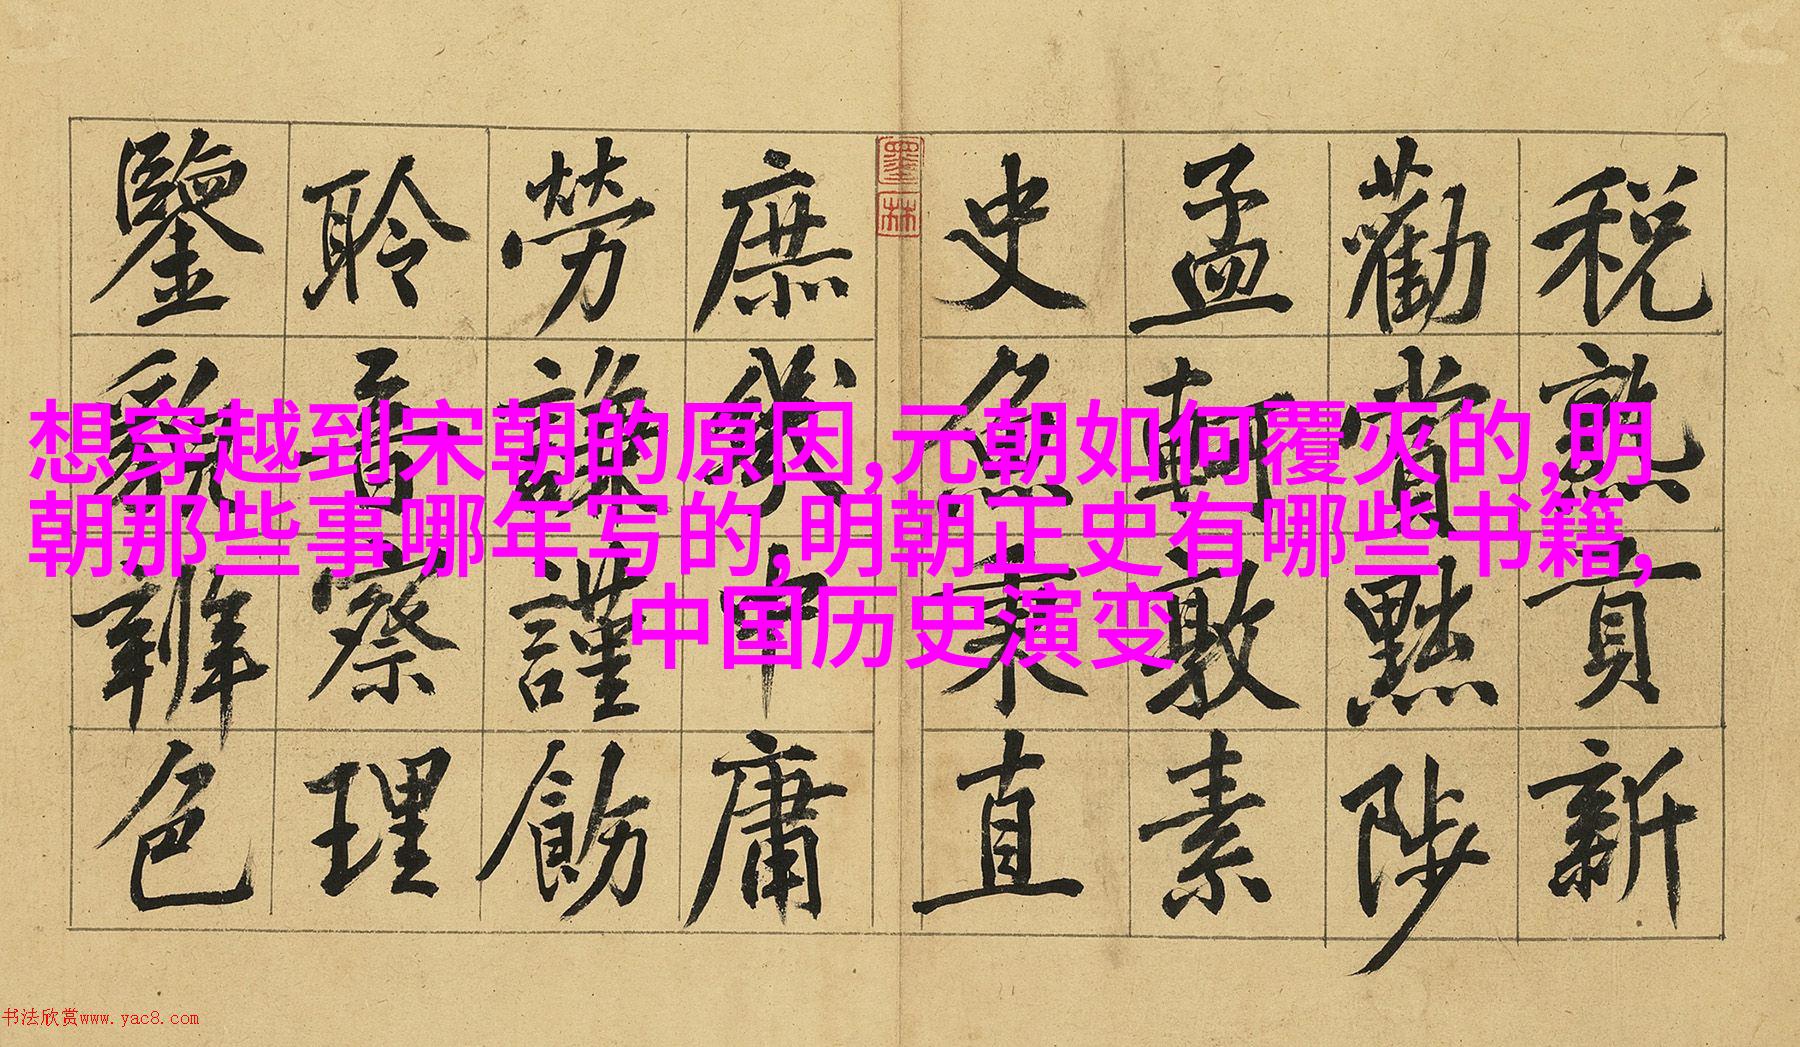 想穿越到宋朝的原因,元朝如何覆灭的,明
朝那些事哪年写的,明朝正史有哪些书籍,
中国历史演变
税熟貢新
勸賞黜陟
孟軻敦素
史魚秉直
庶幾中庸
勞謙謹飭
聆音察理
鑒貌辨色
墨林
书法欣赏www.yac8.com